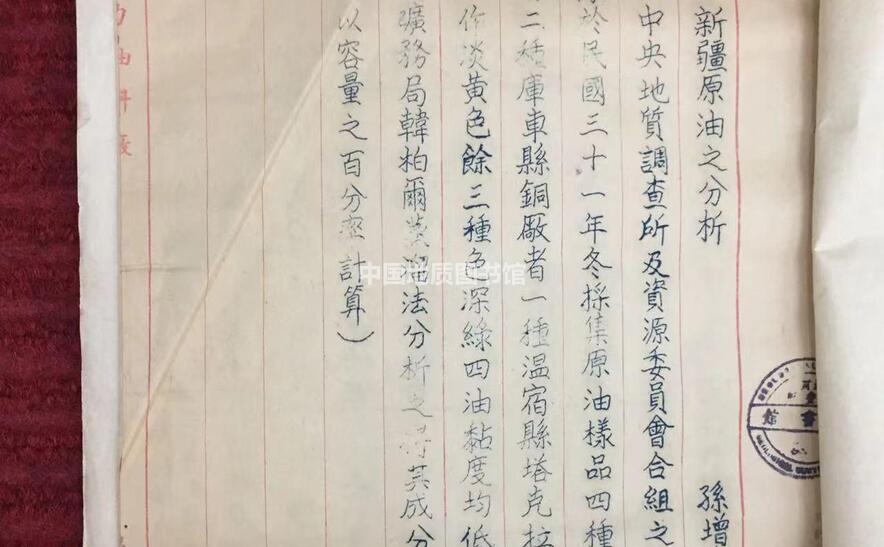 新疆原油之分析
孫增
中央地質調查所及資源委員會合組之
於民國三十一年冬採集原油樣品四種
二種庫車縣銅廠者一種温宿縣塔克拉
作淡黄色餘三種色深綠四油黏度均低
礦務局韓柏爾蒸溜法分析之得其成分
以容量之百分率計算）
力油料廠
中国地质图书馆